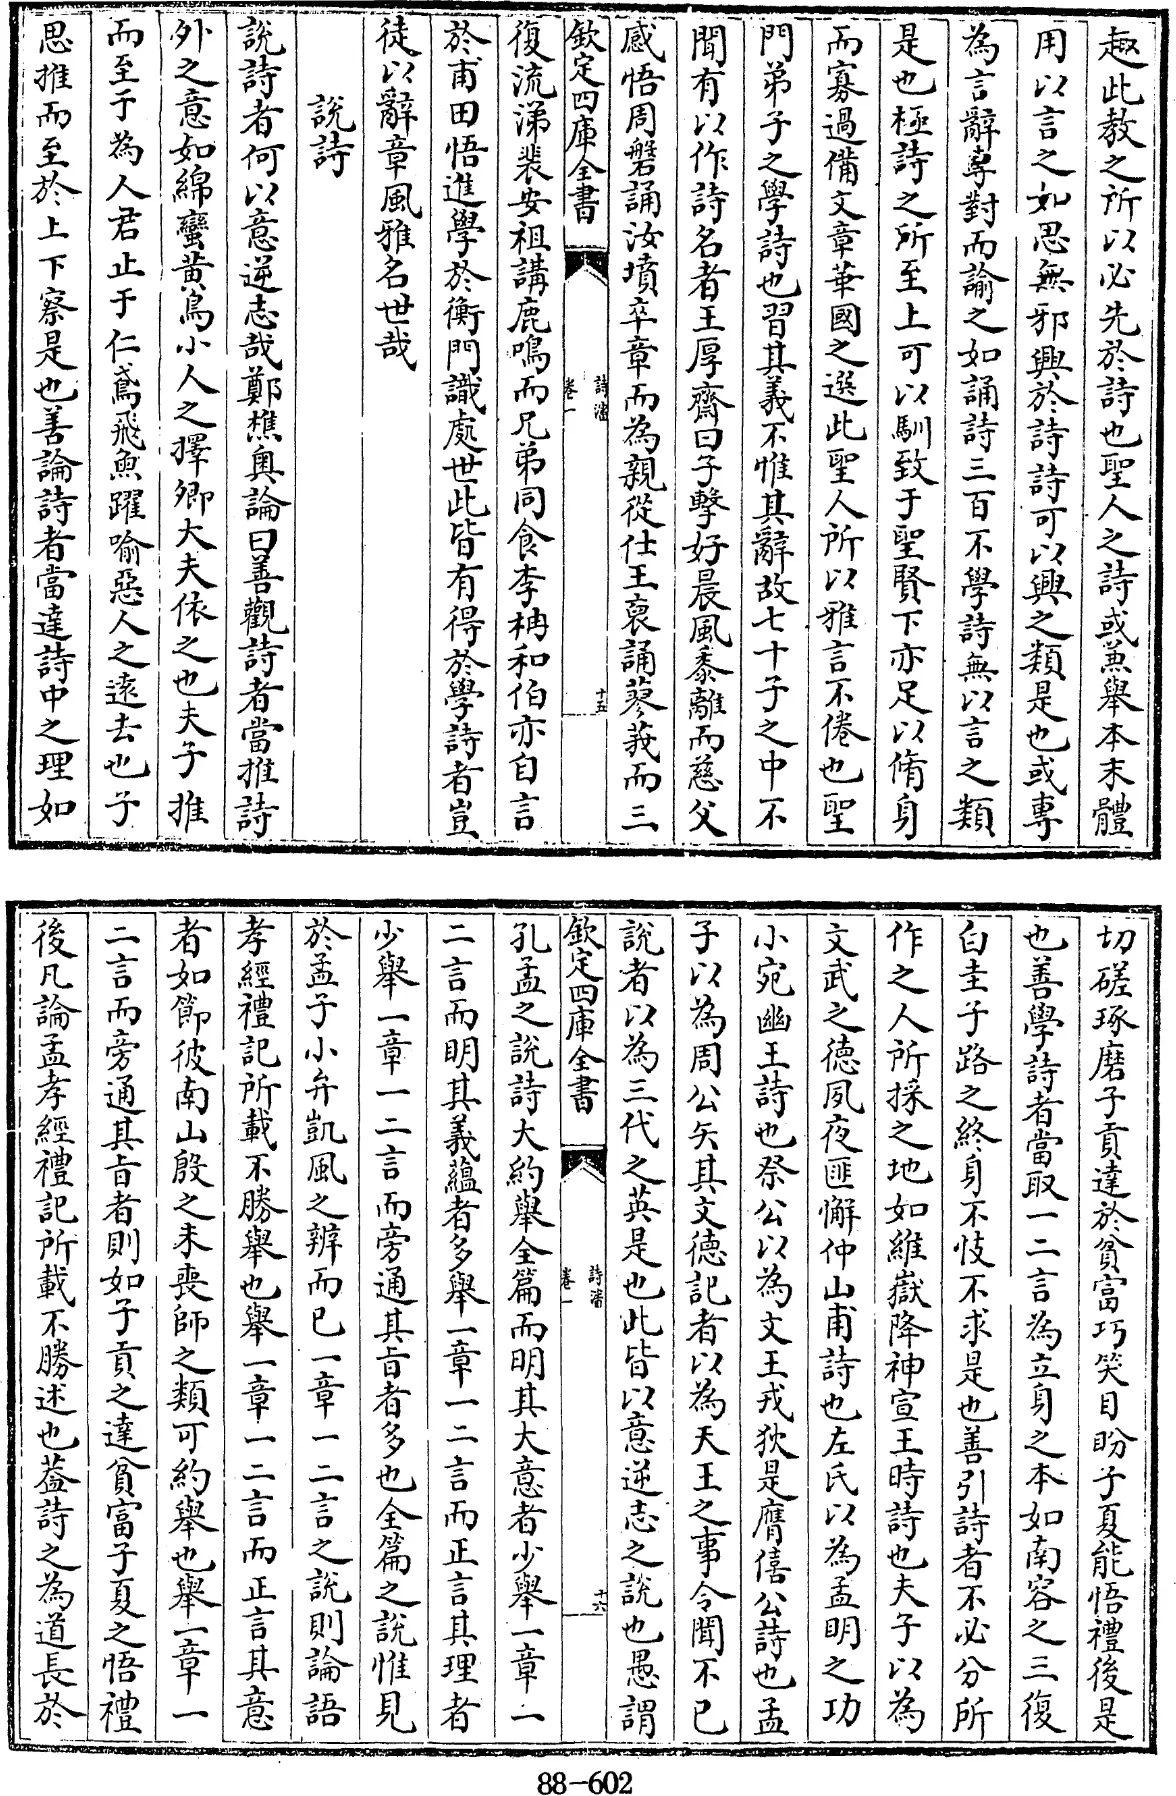 趣此教之所以必先於詩也聖人之詩或兼舉本末體
用以言之如思無邪興於詩詩可以興之類是也或專
為言辭專對而諭之如誦詩三百不學詩無以言之類
是也極詩之所至上可以馴致于聖賢下亦足以脩身
而寡過備文章華國之選此聖人所以雅言不倦也聖
門弟子之學詩也習其義不惟其辭故七十子之中不
聞有以作詩名者王厚齋曰子擊好晨風黍離而慈父
感悟周磐誦汝墳卒章而為親從仕王裒誦蓼莪而三
欽定四庫全書
詩瀋
卷一
十五
復流涕裴安祖講鹿鳴而兄弟同食李柟和伯亦自言
於甫田悟進學於衡門識處世此皆有得於學詩者豈
徒以辭章風雅名世哉
說詩
說詩者何以意逆志哉鄭樵奥論曰善觀詩者當推詩
外之意如綿蠻黄鳥小人之擇卿大夫依之也夫子推
而至于為人君止于仁鳶飛魚躍喻惡人之遠去也子
思推而至於上下察是也善論詩者當達詩中之理如
切磋琢磨子貢達於貧富巧笑目盼子夏能悟禮後是
也善學詩者當取一二言為立身之本如南容之三復
白圭子路之終身不忮不求是也善引詩者不必分所
作之人所採之地如維嶽降神宣王時詩也夫子以為
文武之德夙夜匪懈仲山甫詩也左氏以為孟明之功
小宛幽王詩也祭公以為文王戎狄是膺僖公詩也孟
子以為周公矢其文德記者以為天王之事令聞不已
說者以為三代之英是也此皆以意逆志之說也愚謂
欽定四庫全書
詩瀋
卷一
十六
孔孟之說詩大約舉全篇而明其大意者少舉一章一
二言而明其義藴者多舉一章一二言而正言其理者
少舉一章一二言而旁通其旨者多也全篇之說惟見
於孟子小弁凱風之辨而已一章一二言之說則論語
孝經禮記所載不勝舉也舉一章一二言而正言其意
者如節彼南山殷之未喪師之類可約舉也舉一章一
二言而旁通其旨者則如子貢之達貧富子夏之悟禮
後凡論孟孝經禮記所載不勝述也葢詩之為道長於
88-602